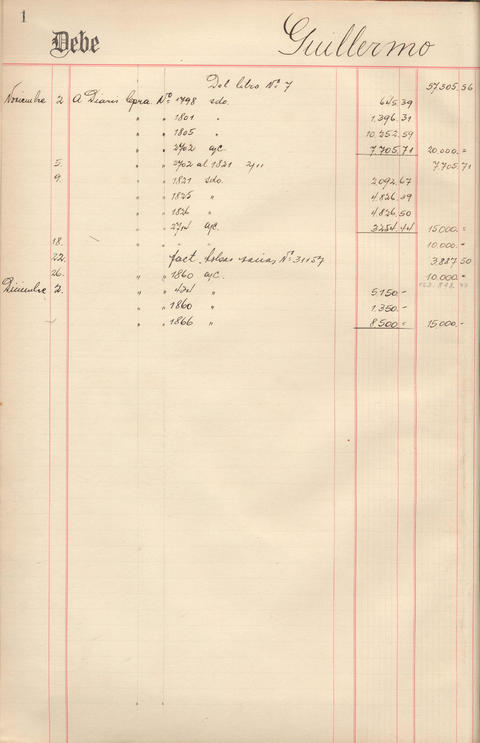 1
Debe Guillermo
Del libro Nº 7 57.305.36
Noviembre 2 A Diario Cpra. Nº 1798 sdo. 645.39
" " 1801 " 1.396.31
" " 1805 " 10.252.59
" " 2702 a/c. 7.705.71 20.000.=
5. " " 2702 al 1821 7.705.71
9. " " 1821 sdo. 2.092.67
" " 1825 " 4.826.39
" " 1826 " 4.826.50
" " 2714 a/c. 3254.44 15000.=
18. " " " " 10.000.-
22. fact. bolsas vacias Nº 31157 3887.50
26. " " 1860 a/c. 10.000.-
Diciembre 2. " " 434 " 5.150.-
" " 1860 " 1.350.-
" " 1866 " 8.500.= 15,000.-